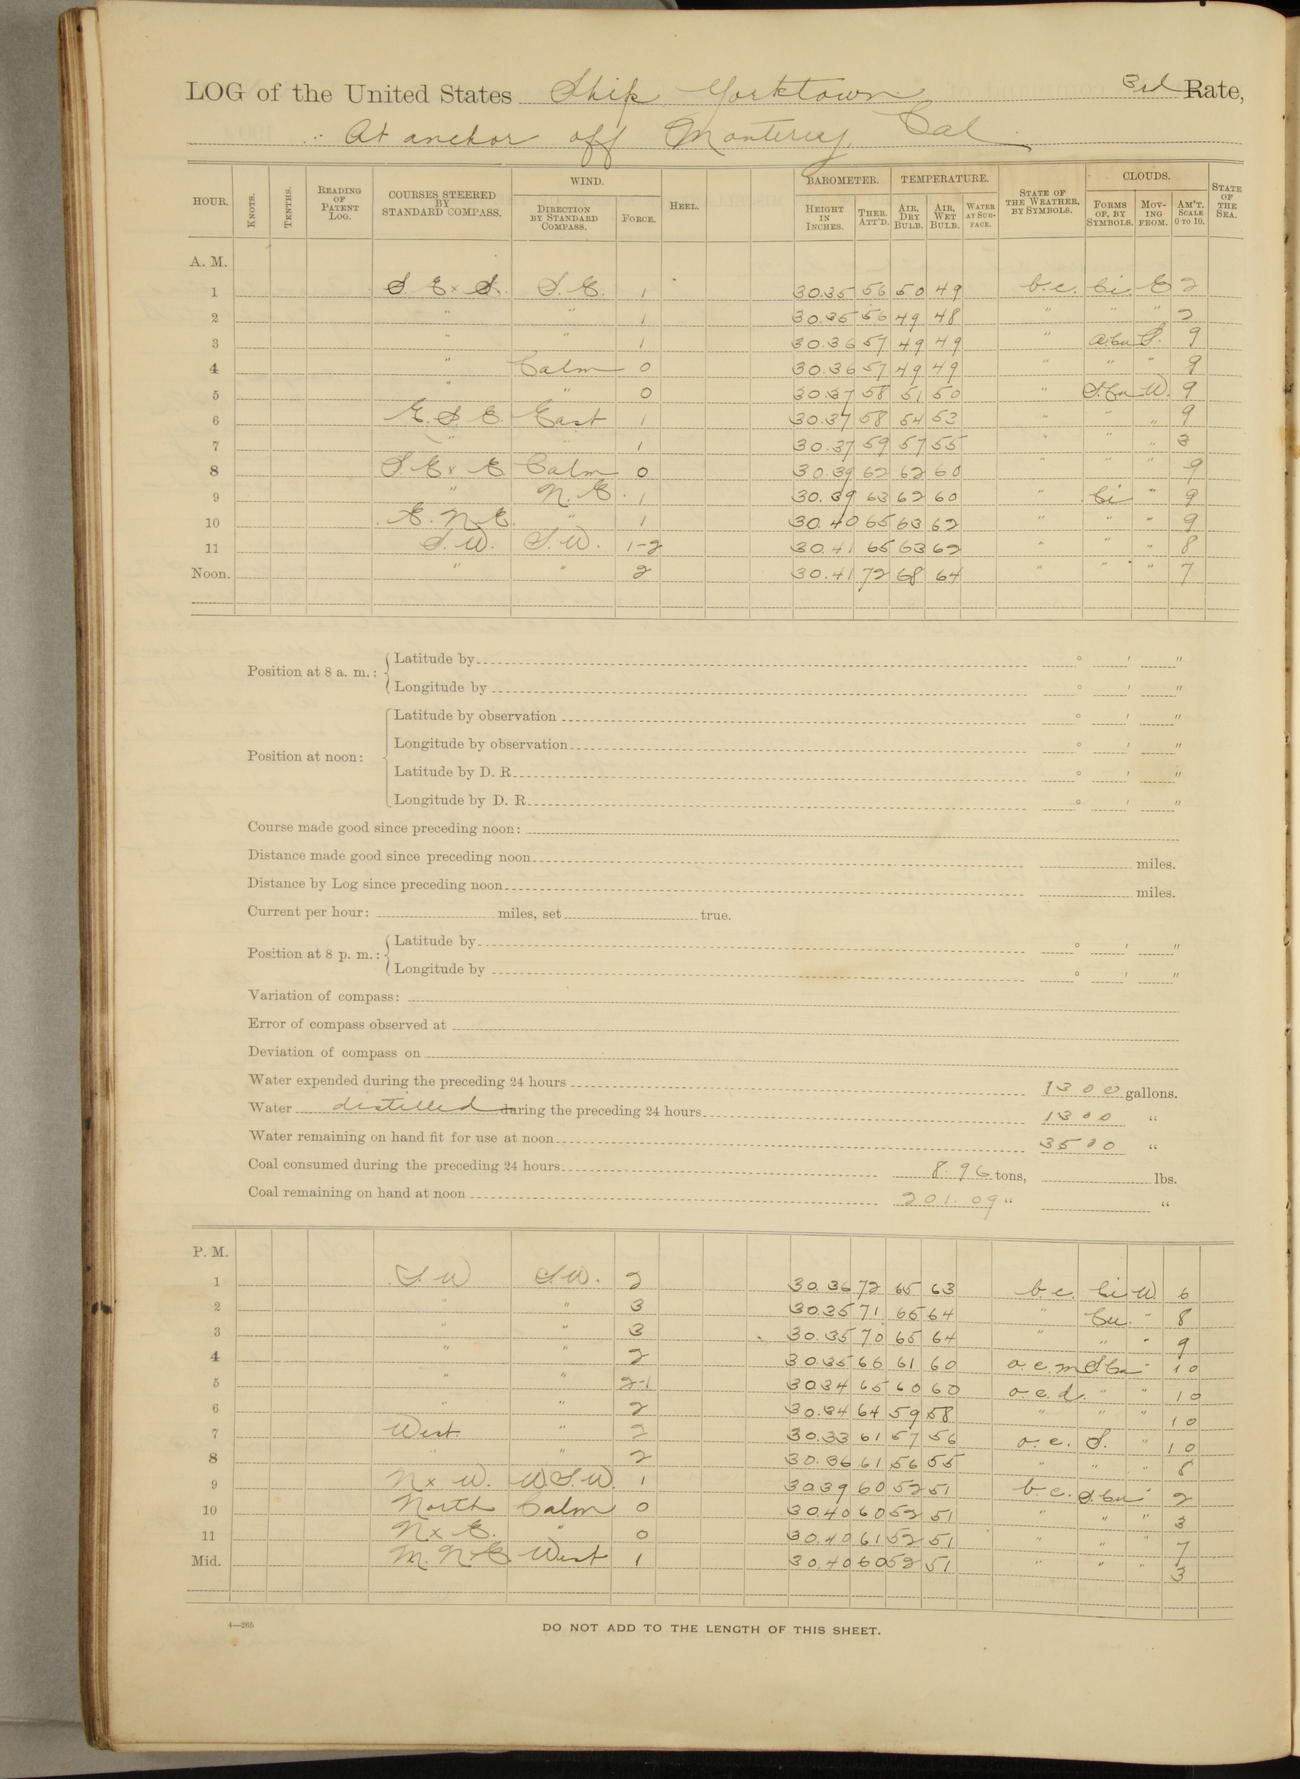 LOG of the United States Ship Yorktown 3rd Rate,
At anchor off Monterey, Cal
HOUR. KNOTS. TENTHS. READING OF PATENT LOG. COURSES STEERED BY STANDARD COMPASS. WIND. DIRECTION BY STANDARD COMPASS. FORCE. HEEL. BAROMETER. HEIGHT IN INCHES. THER. ATT'D. TEMPERATURE. AIR, DRY BULB. AIR, WET BULB. WATER AT SURFACE. STATE OF THE WEATHER, BY SYMBOLS. CLOUDS. FORMS OF, BY SYMBOLS. MOVING FROM. AM'T. SCALE 0 TO 10. STATE OF THE SEA.
A. M.
1 S. E x S. S. E. 1 30.35 56 50 49 b.c. Ci. E 2
2 " " 1 30.35 56 49 48 " " " 2
3 " " 1 30.36 57 49 49 a.cu S. 9
4 " Calm 0 30.36 57 49 49 " " " 9
5 " " 0 30.37 58 51 50 " S.Cu W. 9
6 E. S. E. East 1 30.37 58 54 53 " " " 9
7 " " 1 30.37 59 57 55 " " " 3
8 S. E x E Calm 0 30.39 62 62 60 " " " 9
9 " N. E. 1 30.39 63 62 60 " Ci " 9
10 E. N E. " 1 30.40 65 63 62 " " " 9
11 S. W. S. W. 1-2 30.41 65 63 62 " " " 8
Noon. " " 2 30.41 72 68 64 " " " 7
Position at 8 a. m.: Latitude by ° ' "
Longitude by ° ' "
Position at noon: Latitude by observation ° ' "
Longitude by observation ° ' "
Latitude by D. R. ° ' "
Longitude by D. R. ° ' "
Course made good since preceding noon:
Distance made good since preceding noon miles.
Distance by Log since preceding noon miles.
Current per hour: miles, set true.
Position at 8 p. m.: Latitude by ° ' "
Longitude by ° ' "
Variation of compass:
Error of compass observed at
Deviation of compass on
Water expended during the preceding 24 hours 1300 gallons.
Water distilled during the preceding 24 hours 1300 "
Water remaining on hand fit for use at noon 3500 "
Coal consumed during the preceding 24 hours 8.96 tons, lbs.
Coal remaining on hand at noon 201.09 " "
P. M.
1 S. W S.W. 2 30.36 72 65 63 b.c. Ci W 6
2 " " 3 30.35 71 65 64 " Cu. " 8
3 " " 3 30.35 70 65 64 " " " 9
4 " " 2 30.35 66 61 60 o.c.m S.Cu " 10
5 " " 2-1 30.34 65 60 60 o.c.d. " " 10
6 " " 2 30.34 64 59 58 " " " 10
7 West " 2 30.33 61 57 56 o.c. S. " 10
8 " " 2 30.36 61 56 55 " " " 8
9 N x W. W.S.W. 1 30.39 60 52 51 b.c. S.Cu " 2
10 North Calm 0 30.40 60 52 51 " " " 3
11 N x E. " 0 30.40 61 52 51 " " " 7
Mid. N. N E West 1 30.40 60 52 51 " " " 3
4—265
DO NOT ADD TO THE LENGTH OF THIS SHEET.